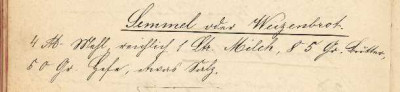 Semmel oder Weizenbrot.
4 ℔. Mehl, reichlich 1 Ltr. Milch, 85 Gr. Butter,
50 Gr. Hefe, etwas Salz.